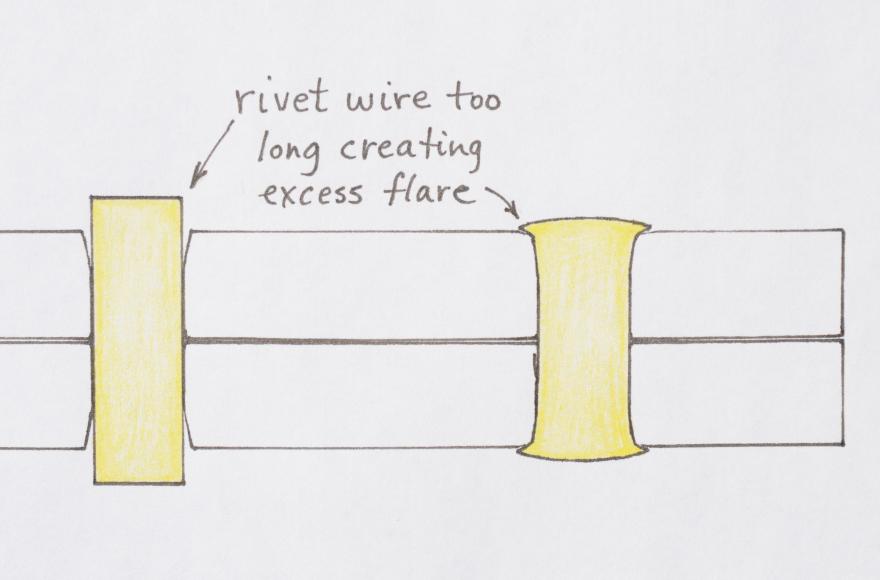 rivet wire too
long creating
excess flare